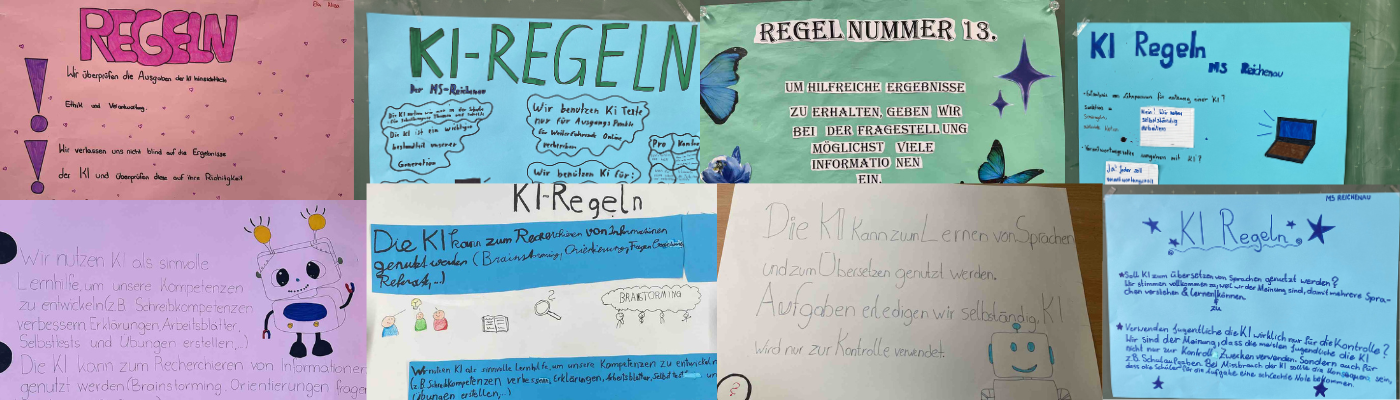 REGELN
Wir überprüfen die Ausgaben der KI hinsichtlich
Ethik und Verantwortung.
Wir verlassen uns nicht blind auf die Ergebnisse
der KI und überprüfen diese auf ihre Richtigkeit
KI-REGELN
Der MS-Reichenau
Die KI ist ein wichtiger
bestandteil unserer
Generation
Wir benutzen Ki Texte
nur für Ausgangs Punkte
für Weiterführende Online
Wir benützen Ki für:
Pro
REGEL NUMMER 13.
UM HILFREICHE ERGEBNISSE
ZU ERHALTEN, GEBEN WIR
BEI DER FRAGESTELLUNG
MÖGLICHST VIELE
INFORMATIONEN
EIN.
KI Regeln
MS Reichenau
einer KI?
Nein! Wir sollen
selbstständig
arbeiten
mit KI?
Ja! Jeder soll
Wir nutzen KI als sinnvolle
Lernhilfe, um unsere Kompetenzen
zu entwickeln (z.B. Schreibkompetenzen
verbessern, Erklärungen, Arbeitsblätter,
Selbsttests und Übungen erstellen,...)
Die KI kann zum Recherchieren von Informationen
genutzt werden (Brainstorming, Orientierungen fragen
KI-Regeln
Die KI kann zum Recherchieren von Informationen
genutzt werden (Brainstorming, Orientierung, Fragen
Referat,...)
?
BRAINSTORMING
Wir nutzen KI als sinnvolle Lernhilfe, um unsere Kompetenzen zu entwickeln
(z.B. Schreibkompetenzen verbessern, Erklärungen, Arbeitsblätter, Selbsttest un
Übungen erstellen,...)
Die KI kann zum Lernen von Sprachen
und zum Übersetzen genutzt werden.
Aufgaben erledigen wir selbständig, KI
wird nur zur Kontrolle verwendet.
?
MS REICHENAU
KI Regeln
Soll KI zum übersetzen von Sprachen genutzt werden?
Wir stimmen vollkommen zu, weil wir der Meinung sind, damit mehrere Spra-
chen verstehen & lernen können.
zu
Verwenden Jugentliche die KI wirklich nur für die Kontrolle?
Wir sind der Meinung, dass die meisten Jugendliche die KI
nicht nur zur Kontroll Zwecken verwenden. Sondern auch für
z.B. Schulaufgaben. Bei Missbrauch der KI sollte die Konsequenz sein,
dass die Schüler für die Aufgabe eine schlechte Note bekommen.